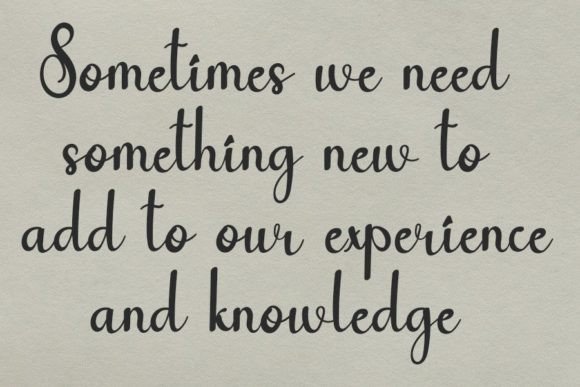 Sometimes we need
something new to
add to our experience
and knowledge